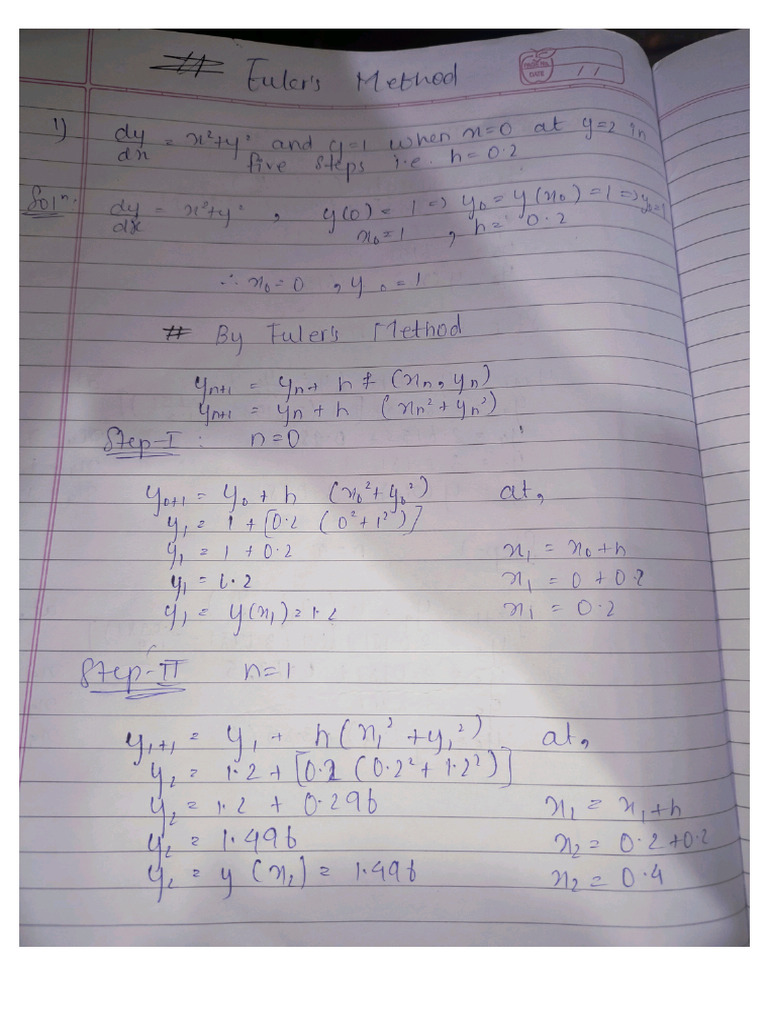 # Euler's Method
DATE / /
1) dy/dx = x²+y² and y=1 when x=0 at y=2 in
five steps i.e. h=0.2
Solⁿ. dy/dx = x²+y² , y(0) = 1 => y₀ = y(x₀) = 1 => y₀=1
x₀=1 , h= 0.2
∴ x₀=0 , y₀=1
# By Euler's Method
yₙ₊₁ = yₙ + h f (xₙ, yₙ)
yₙ₊₁ = yₙ + h (xₙ² + yₙ²)
Step-I : n=0
y₀₊₁ = y₀ + h (x₀² + y₀²) at,
y₁ = 1 + [0.2 (0² + 1²)]
y₁ = 1 + 0.2 x₁ = x₀+h
y₁ = 1.2 x₁ = 0 + 0.2
y₁ = y(x₁) = 1.2 x₁ = 0.2
Step-II n=1
y₁₊₁ = y₁ + h(x₁² + y₁²) at,
y₂ = 1.2 + [0.2 (0.2² + 1.2²)]
y₂ = 1.2 + 0.296 x₁ = x₁+h
y₂ = 1.496 x₂ = 0.2+0.2
y₂ = y (x₂) = 1.496 x₂ = 0.4